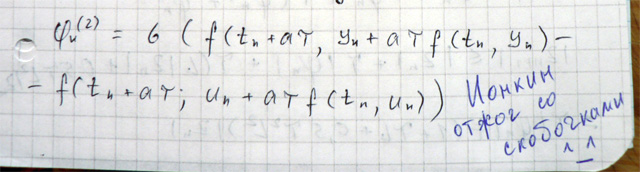 φₙ⁽²⁾ = б ( f(tₙ+aτ, yₙ+aτf(tₙ, yₙ) −
− f(tₙ+aτ; uₙ+aτf(tₙ, uₙ))
Ионкин
отжог со
скобочками
^_^